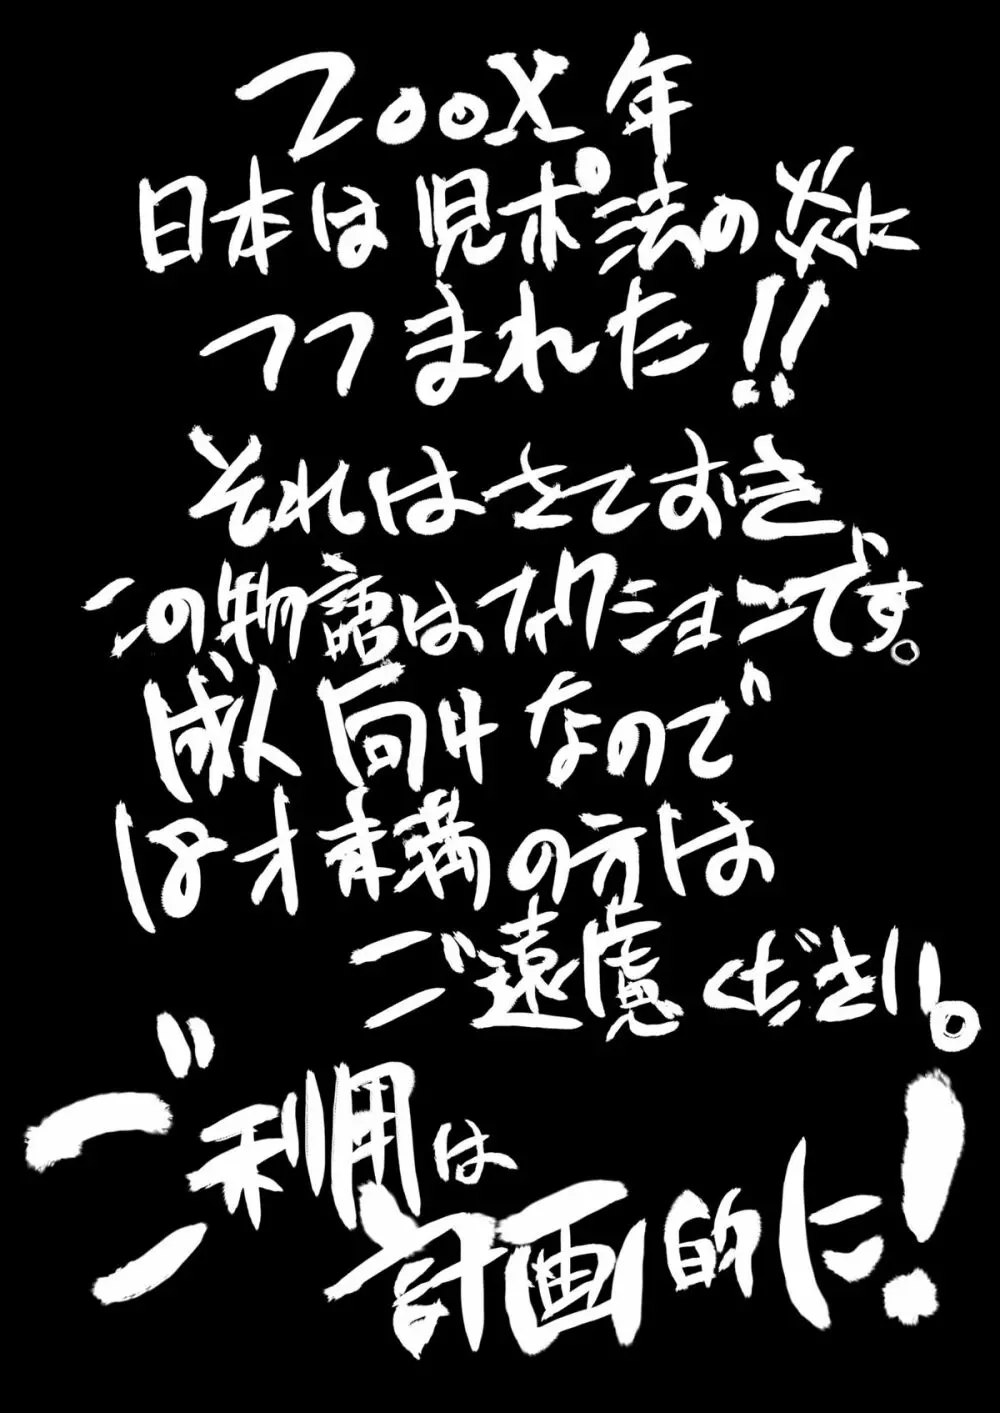 200X年
日本は児ポ法の炎に
つつまれた!!
それはさておき、
この物語はフィクションです。
成人向けなので
18才未満の方は
ご遠慮ください。
ご利用は
計画的に!